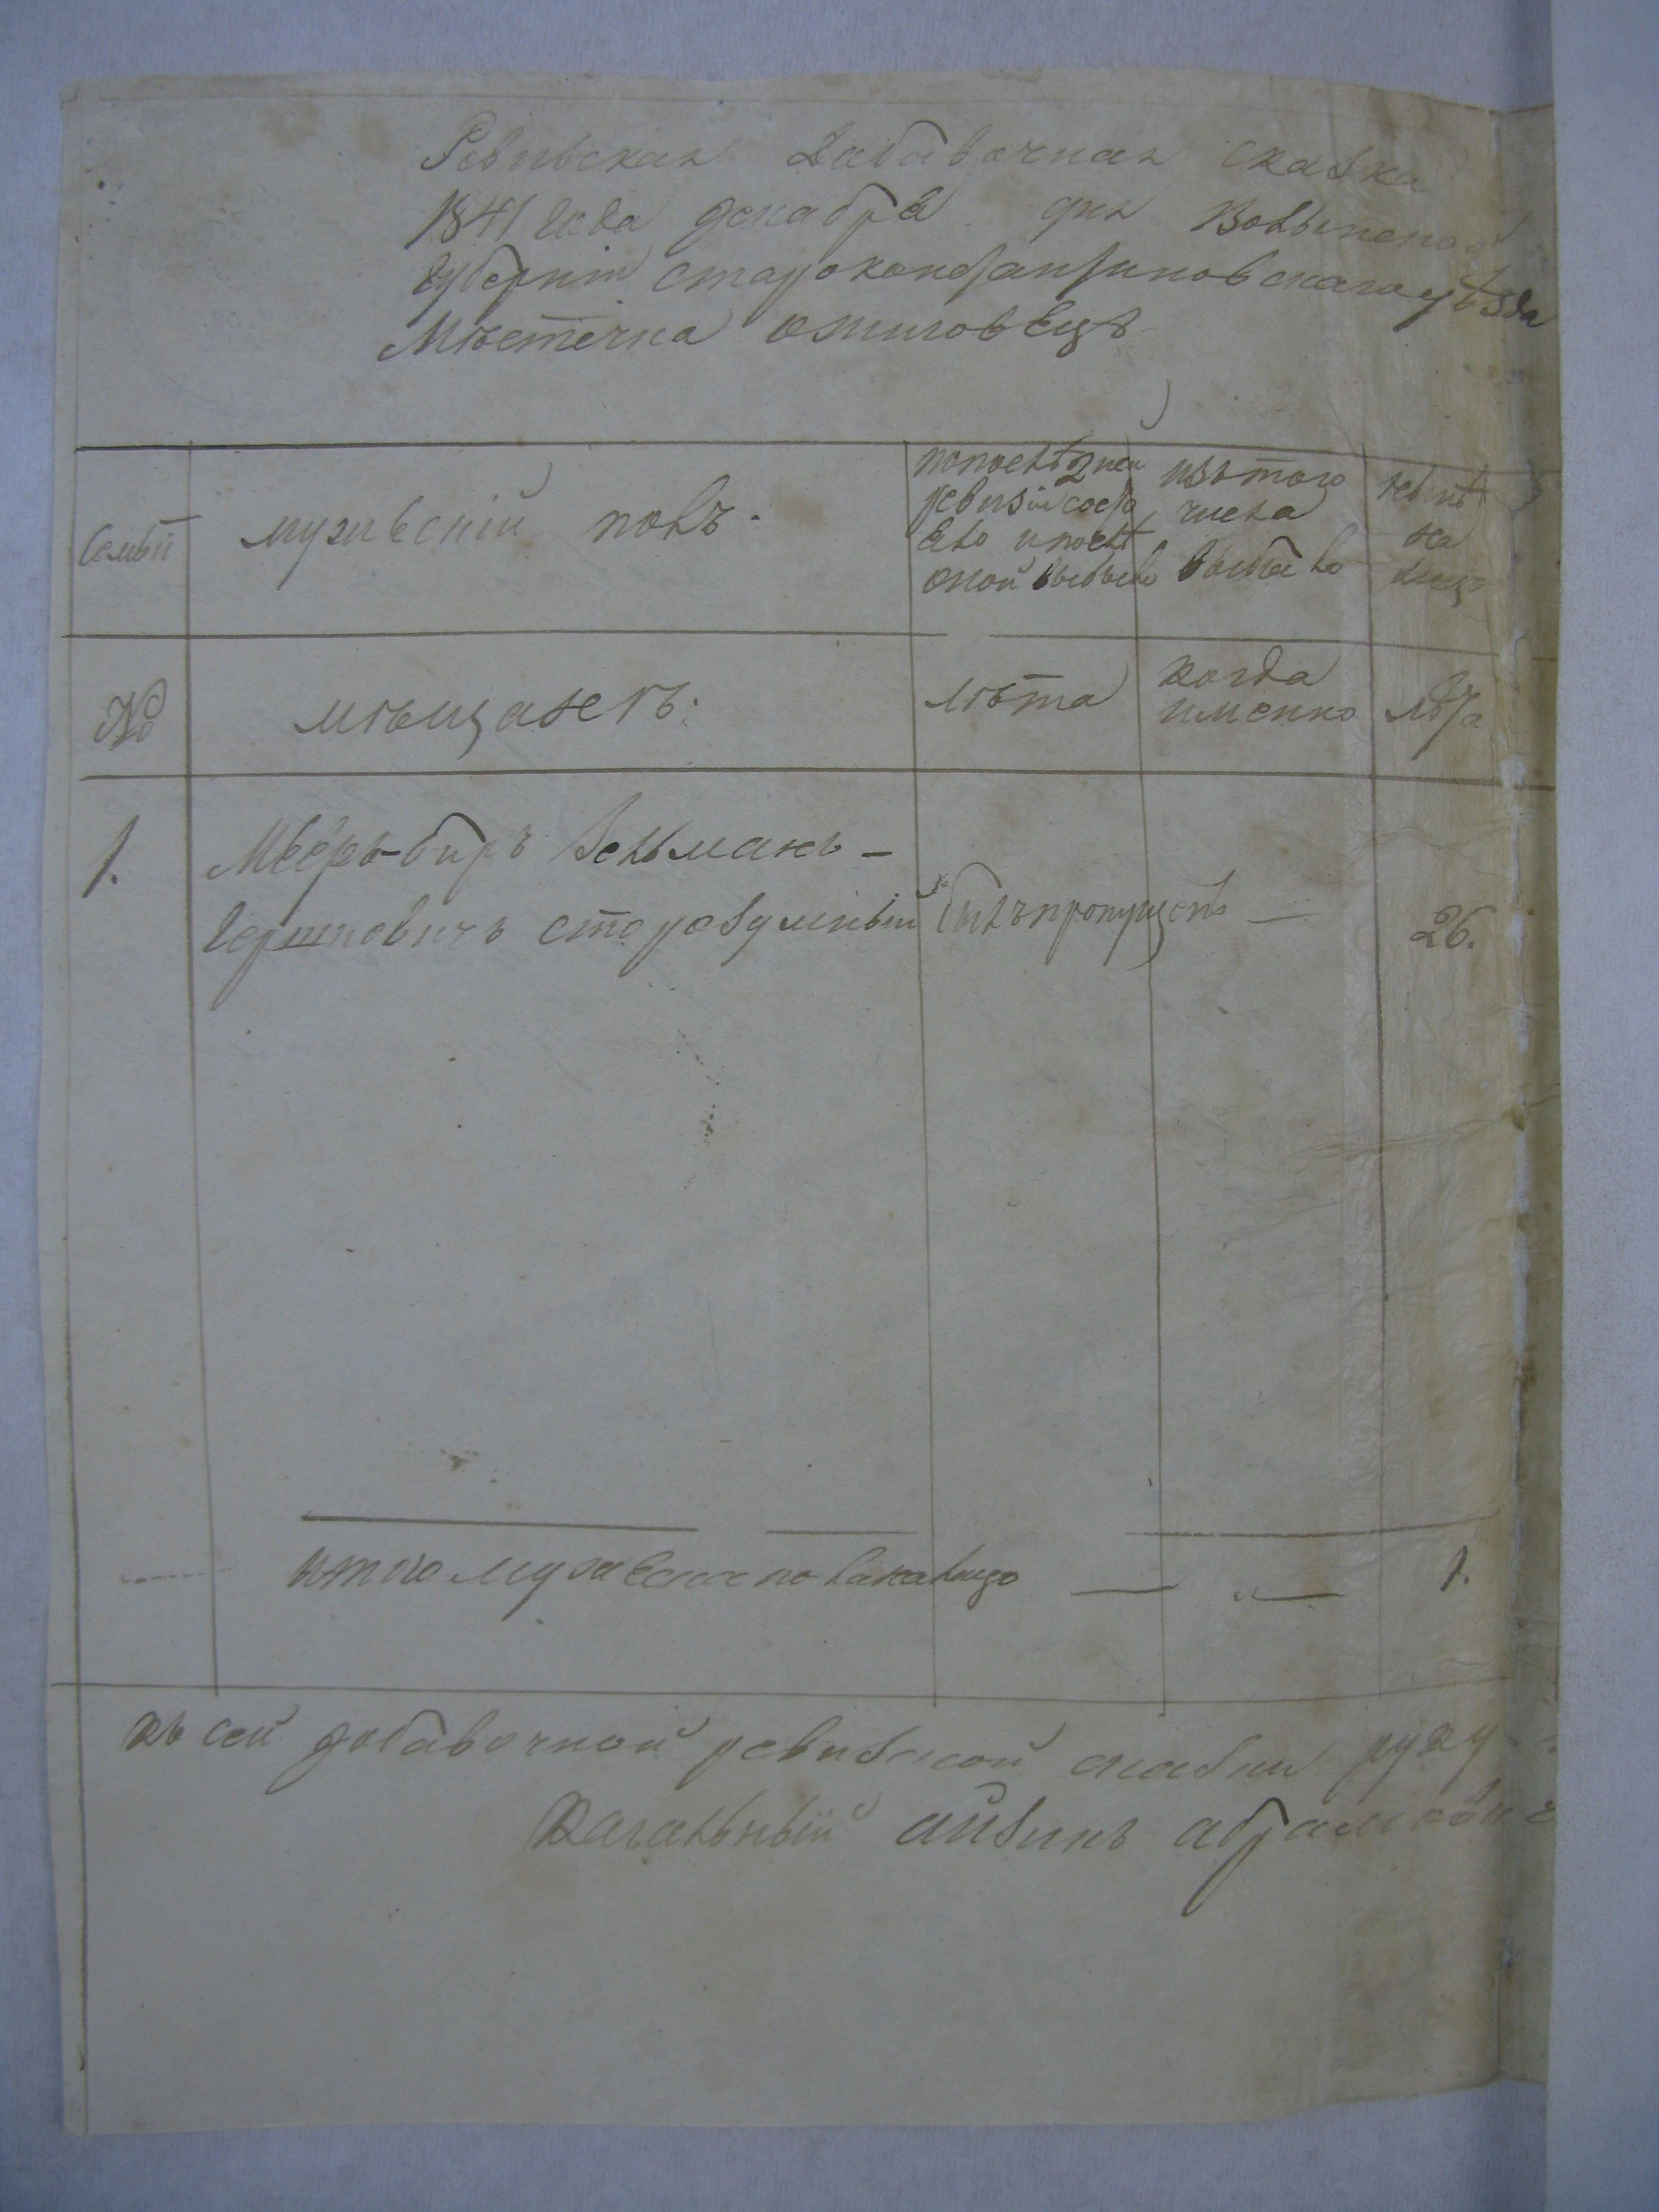 Ревизская Дабавочная сказка
1841 года декабре дня Волынской
Губернiи староконстантиновскаго уѣзда
Мѣстечка ожиговецъ
Семьи
мужескiй полъ.
изъ того
числа
выбыло
нынѣ
на
лицо
№
мѣщанетъ.
лѣта
когда
именно
лѣта
1.
Мееръ-биръ Зельманъ-
Гершковичъ старозумный былъ пропущенъ — 26.
итого мужеска пола на лицо — „ — 1.
къ сей добавочной ревизской сказки руку
Кагальный айзикъ абрамович